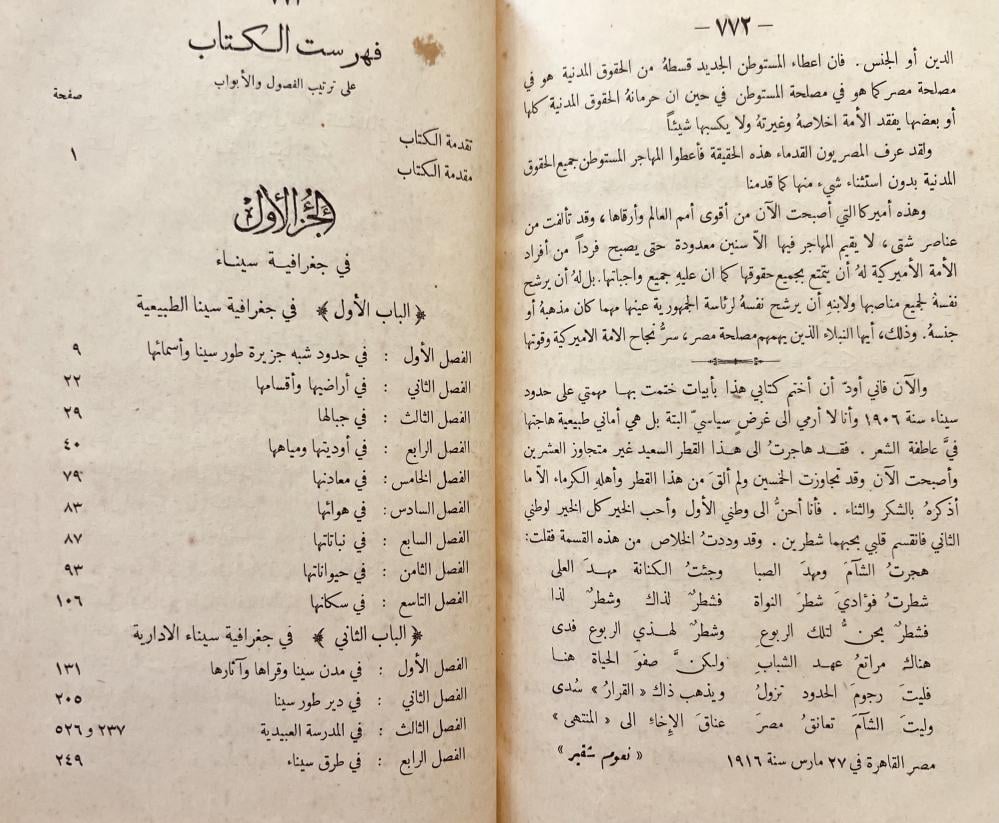 — ٧٧٢ —
الدين أو الجنس . فان اعطاء المستوطن الجديد قسطهُ من الحقوق المدنية هو في
مصلحة مصر كما هو في مصلحة المستوطن في حين ان حرمانهُ الحقوق المدنية كلها
أو بعضها يفقد الأمة اخلاصهُ وغيرتهُ ولا يكسبها شيئاً
ولقد عرف المصريون القدماء هذه الحقيقة فأعطوا المهاجر المستوطن جميع الحقوق
المدنية بدون استثناء شيء منها كما قدمنا
وهذه أميركا التي أصبحت الآن من أقوى أمم العالم وأرقاها ، وقد تألفت من
عناصر شتى ، لا يقيم المهاجر فيها الاّ سنين معدودة حتى يصبح فرداً من أفراد
الأمة الأميركية لهُ أن يتمتع بجميع حقوقها كما ان عليهِ جميع واجباتها. بل لهُ أن يرشح
نفسهُ لجميع مناصبها ولابنهِ أن يرشح نفسهُ لرئاسة الجمهورية عينها مهما كان مذهبهُ أو
جنسهُ . وذلك ، أيها النبلاء الذين يهمهم مصلحة مصر ، سرُّ نجاح الامة الاميركية وقوتها
والآن فاني أودّ أن أختم كتابي هذا بأبيات ختمت بها مهمتي على حدود
سيناء سنة ١٩٠٦ وأنا لا أرمي الى غرضٍ سياسيّ البتة بل هي أماني طبيعية هاجتها
فيَّ عاطفة الشعر . فقد هاجرتُ الى هذا القطر السعيد غير متجاوز العشرين
وأصبحت الآن وقد تجاوزت الخمسين ولم ألقَ من هذا القطر وأهلهِ الكرماء الاّ ما
أذكرهُ بالشكر والثناء . فأنا أحنُّ الى وطني الأول وأحب الخير كل الخير لوطني
الثاني فانقسم قلبي بحبهما شطرين . وقد وددتُ الخلاص من هذه القسمة فقلت:
هجرتُ الشآمَ ومهدَ الصبا وجئتُ الكنانة مهدَ العلى
شطرتُ فؤاديَ شطرَ النواة فشطرٌ لذاك وشطرٌ لذا
فشطرٌ يحنُّ لتلك الربوعِ وشطرٌ لهذي الربوع فدى
هناك مراتعُ عهد الشبابِ ولكنَّ صفوَ الحياة هنا
فليتَ رجومَ الحدود تزولُ ويذهب ذاك « القرارُ » سُدى
وليتَ الشآمَ تعانقُ مصرَ عناقَ الإِخاءِ الى « المنتهى »
مصر القاهرة في ٢٧ مارس سنة ١٩١٦ « نعوم شقير »
فهرست الكتاب
على ترتيب الفصول والأبواب
صفحة
تقدمة الكتاب
مقدمة الكتاب ١
الجزء الأول
في جغرافية سيناء
﴿ الباب الأول ﴾ في جغرافية سينا الطبيعية
الفصل الأول : في حدود شبه جزيرة طور سينا وأسمائها ٩
الفصل الثاني : في أراضيها وأقسامها ٢٢
الفصل الثالث : في جبالها ٢٩
الفصل الرابع : في أوديتها ومياهها ٤٠
الفصل الخامس : في معادنها ٧٩
الفصل السادس : في هوائها ٨٣
الفصل السابع : في نباتاتها ٨٧
الفصل الثامن : في حيواناتها ٩٣
الفصل التاسع : في سكانها ١٠٦
﴿ الباب الثاني ﴾ في جغرافية سيناء الادارية
الفصل الأول : في مدن سينا وقراها وآثارها ١٣١
الفصل الثاني : في دير طور سينا ٢٠٥
الفصل الثالث : في المدرسة العبيدية ٢٣٧ و ٥٢٦
الفصل الرابع : في طرق سيناء ٢٤٩